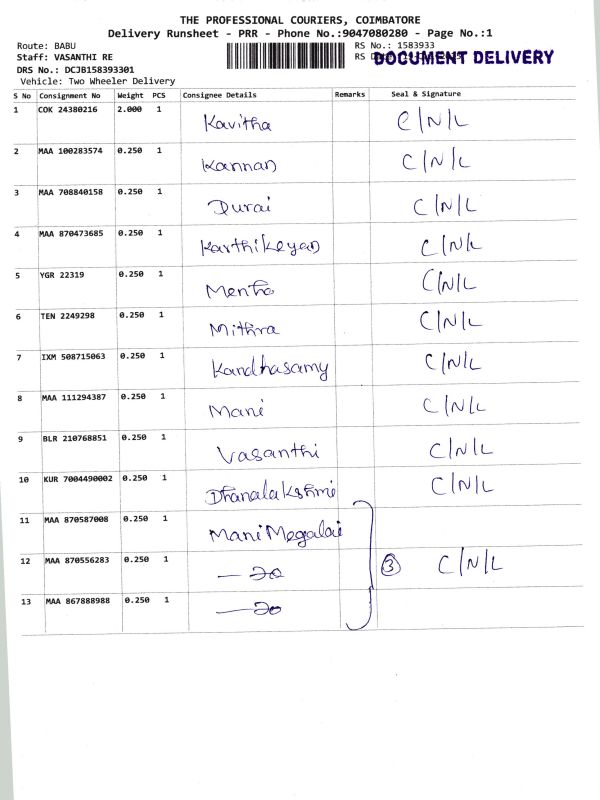 THE PROFESSIONAL COURIERS, COIMBATORE
Delivery Runsheet - PRR - Phone No.:9047080280 - Page No.:1
Route: BABU
RS No.: 1583933
Staff: VASANTHI RE
RS
DOCUMENT DELIVERY
DRS No.: DCJB158393301
Vehicle: Two Wheeler Delivery
S No Consignment No Weight PCS Consignee Details Remarks Seal & Signature
1 COK 24380216 2.000 1 Kavitha C/N/L
2 MAA 100283574 0.250 1 Kannan C/N/L
3 MAA 708840158 0.250 1 Durai C/N/L
4 MAA 870473685 0.250 1 Karthikeyan C/N/L
5 YGR 22319 0.250 1 C/N/L
6 TEN 2249298 0.250 1 Mithra C/N/L
7 IXM 508715063 0.250 1 Kandhasamy C/N/L
8 MAA 111294387 0.250 1 Mani C/N/L
9 BLR 210768851 0.250 1 Vasanthi C/N/L
10 KUR 7004490002 0.250 1 Dhanalakshmi C/N/L
11 MAA 870587008 0.250 1 Mani Megalai
12 MAA 870556283 0.250 1 3 C/N/L
13 MAA 867888988 0.250 1